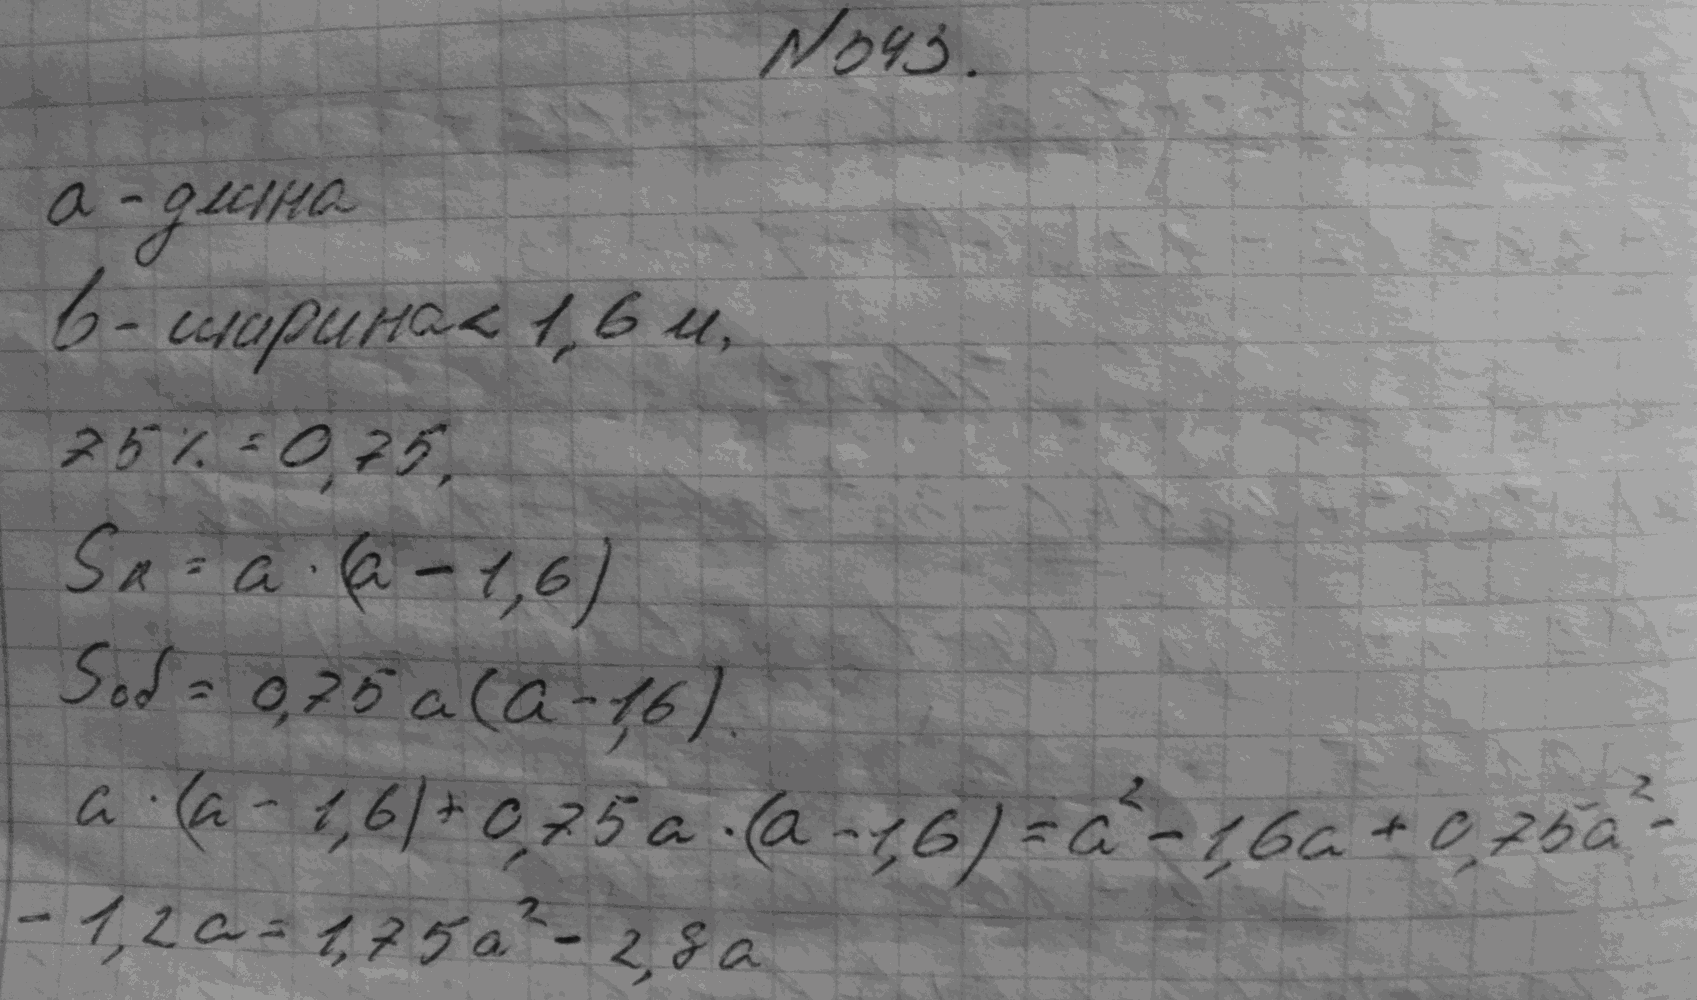 №543.
a - длина
b - ширина < 1,6 м.
75% = 0,75.
Sк = a · (a - 1,6)
Sоб = 0,75 a (a - 1,6).
a · (a - 1,6) + 0,75 a · (a - 1,6) = a² - 1,6a + 0,75a² -
- 1,2a = 1,75a² - 2,8a